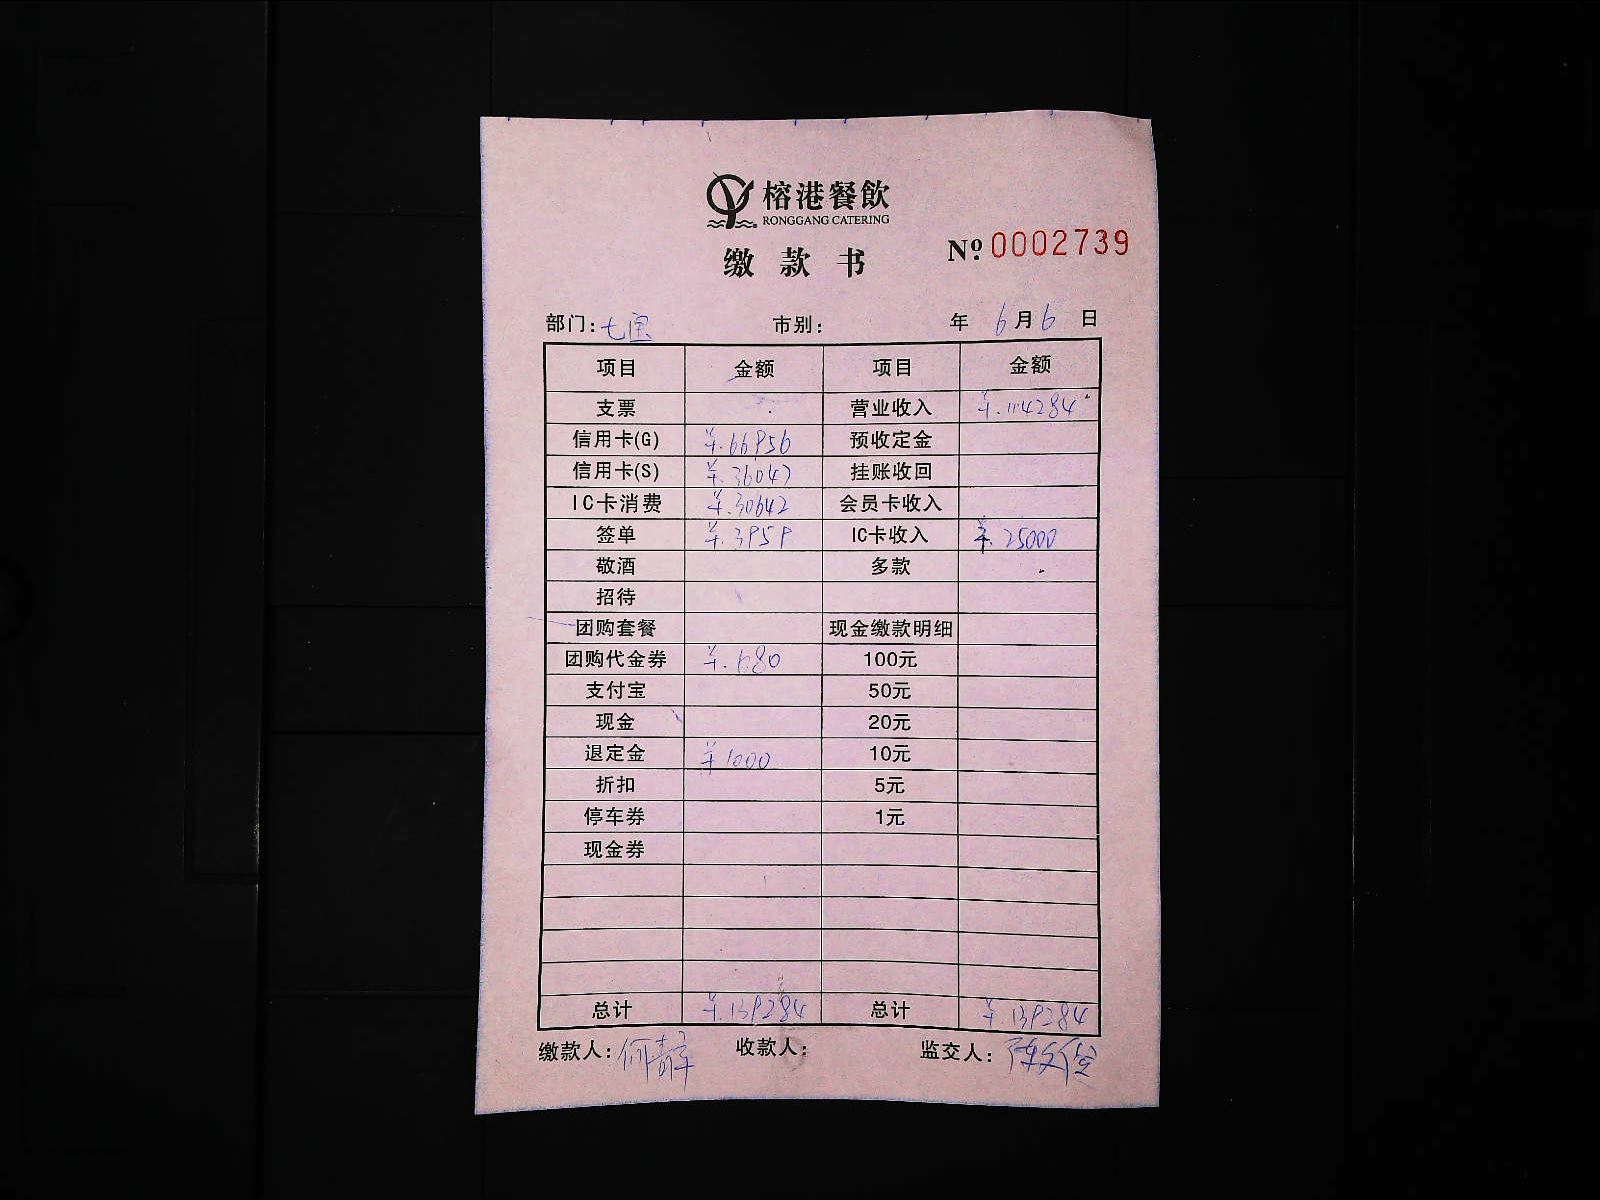 榕港餐飲
RONGGANG CATERING
缴款书 №:0002739
部门:七宝 市别: 年 6月6日
项目 金额 项目 金额
支票 营业收入 ¥.114284
信用卡(G) ¥.66956 预收定金
信用卡(S) ¥.36047 挂账收回
IC卡消费 ¥.30642 会员卡收入
签单 ¥.3959 IC卡收入 ¥.25000
敬酒 多款
招待
团购套餐 现金缴款明细
团购代金券 ¥.680 100元
支付宝 50元
现金 20元
退定金 ¥1000 10元
折扣 5元
停车券 1元
现金券
总计 ¥.139284 总计 ¥139284
缴款人:何静 收款人: 监交人:陈文